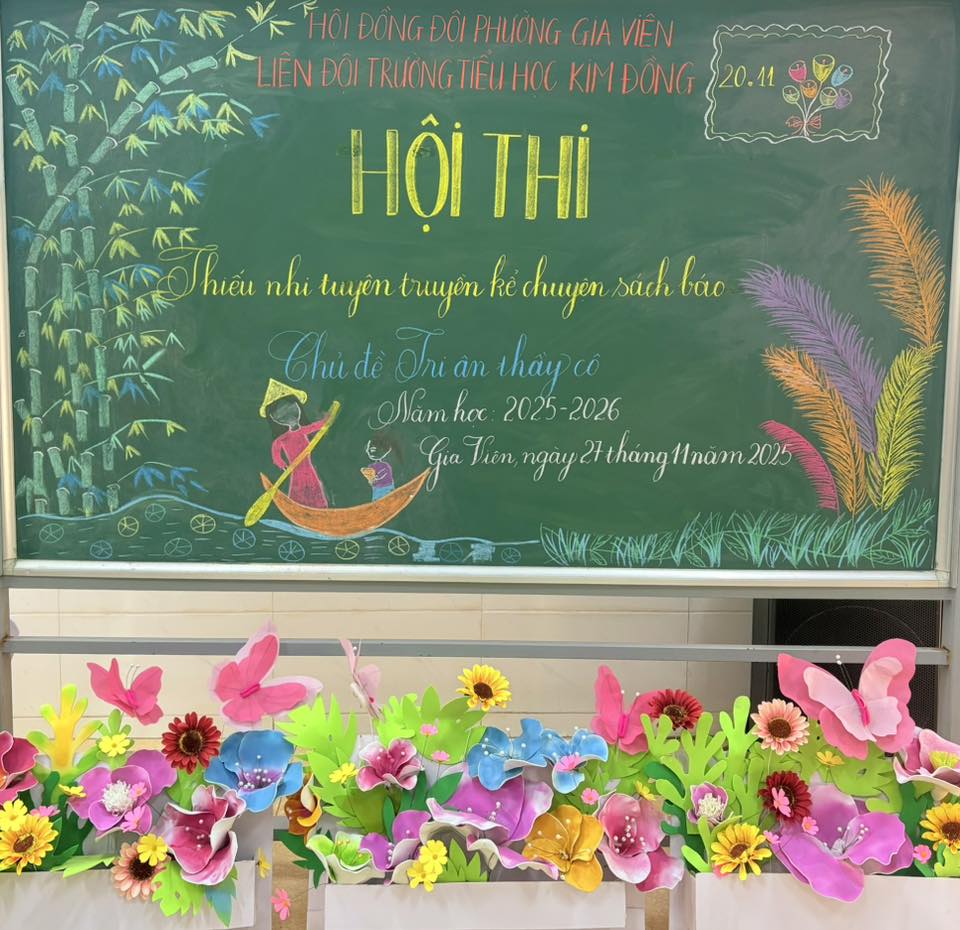 HỘI ĐỒNG ĐỘI PHƯỜNG GIA VIÊN
LIÊN ĐỘI TRƯỜNG TIỂU HỌC KIM ĐỒNG
20.11
HỘI THI
Thiếu nhi tuyên truyền kể chuyện sách báo
Chủ đề Tri ân thầy cô
Năm học: 2025-2026
Gia Viên, ngày 27 tháng 11 năm 2025